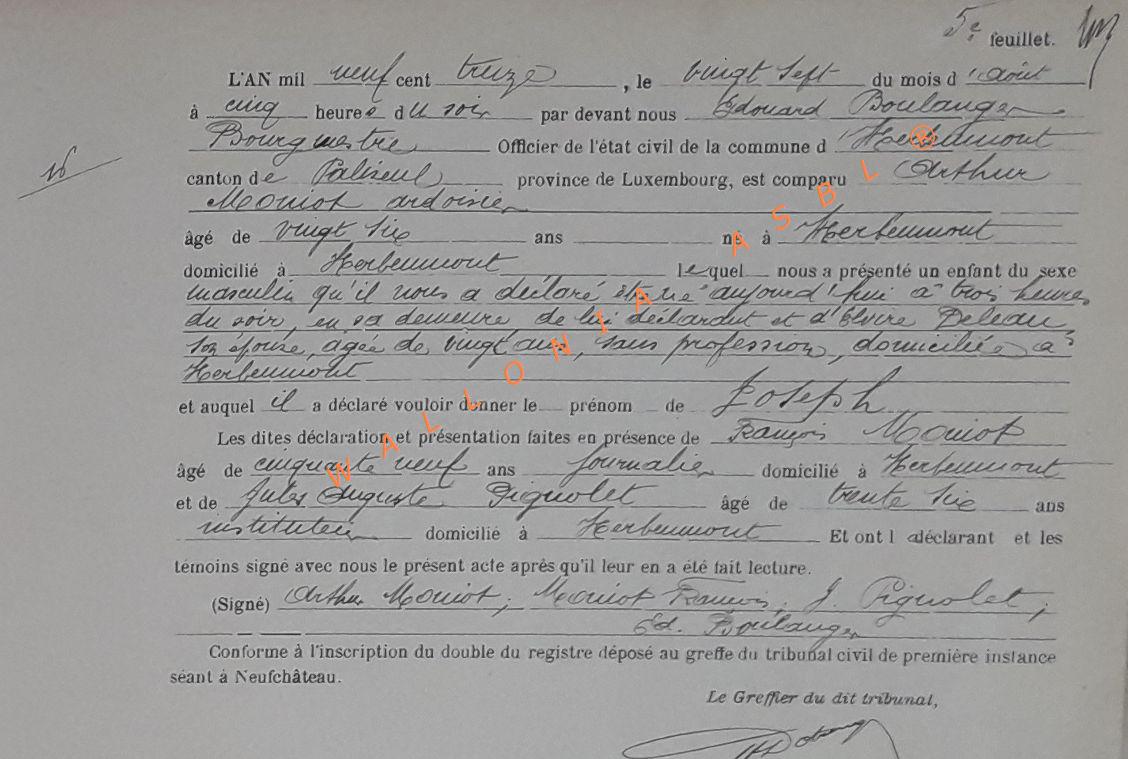 5e feuillet.
L'AN mil neuf cent treize, le vingt sept du mois d'août
à cinq heures du soir par devant nous Edouard Boulanger
Bourgmestre Officier de l'état civil de la commune d'Herbeumont
16
canton de Paliseul province de Luxembourg, est comparu Arthur
Moniot ardoisier
âgé de vingt six ans né à Herbeumont
domicilié à Herbeumont lequel nous a présenté un enfant du sexe
masculin qu'il nous a déclaré être né aujourd'hui à trois heures
du soir, en sa demeure de lui déclarant et d'Elvire Deleau,
son épouse, agée de vingt ans, sans profession, domiciliée à
Herbeumont
et auquel il a déclaré vouloir donner le prénom de Joseph
Les dites déclaration et présentation faites en présence de François Moniot
âgé de cinquante neuf ans journalier domicilié à Herbeumont
et de Jules Auguste Pignolet âgé de trente six ans
instituteur domicilié à Herbeumont Et ont l déclarant et les
témoins signé avec nous le présent acte après qu'il leur en a été fait lecture.
(Signé) Arthur Moniot; Moniot François; J. Pignolet;
Ed. Boulanger
Conforme à l'inscription du double du registre déposé au greffe du tribunal civil de première instance
séant à Neufchâteau.
Le Greffier du dit tribunal,
WALLONIA ASBL ®